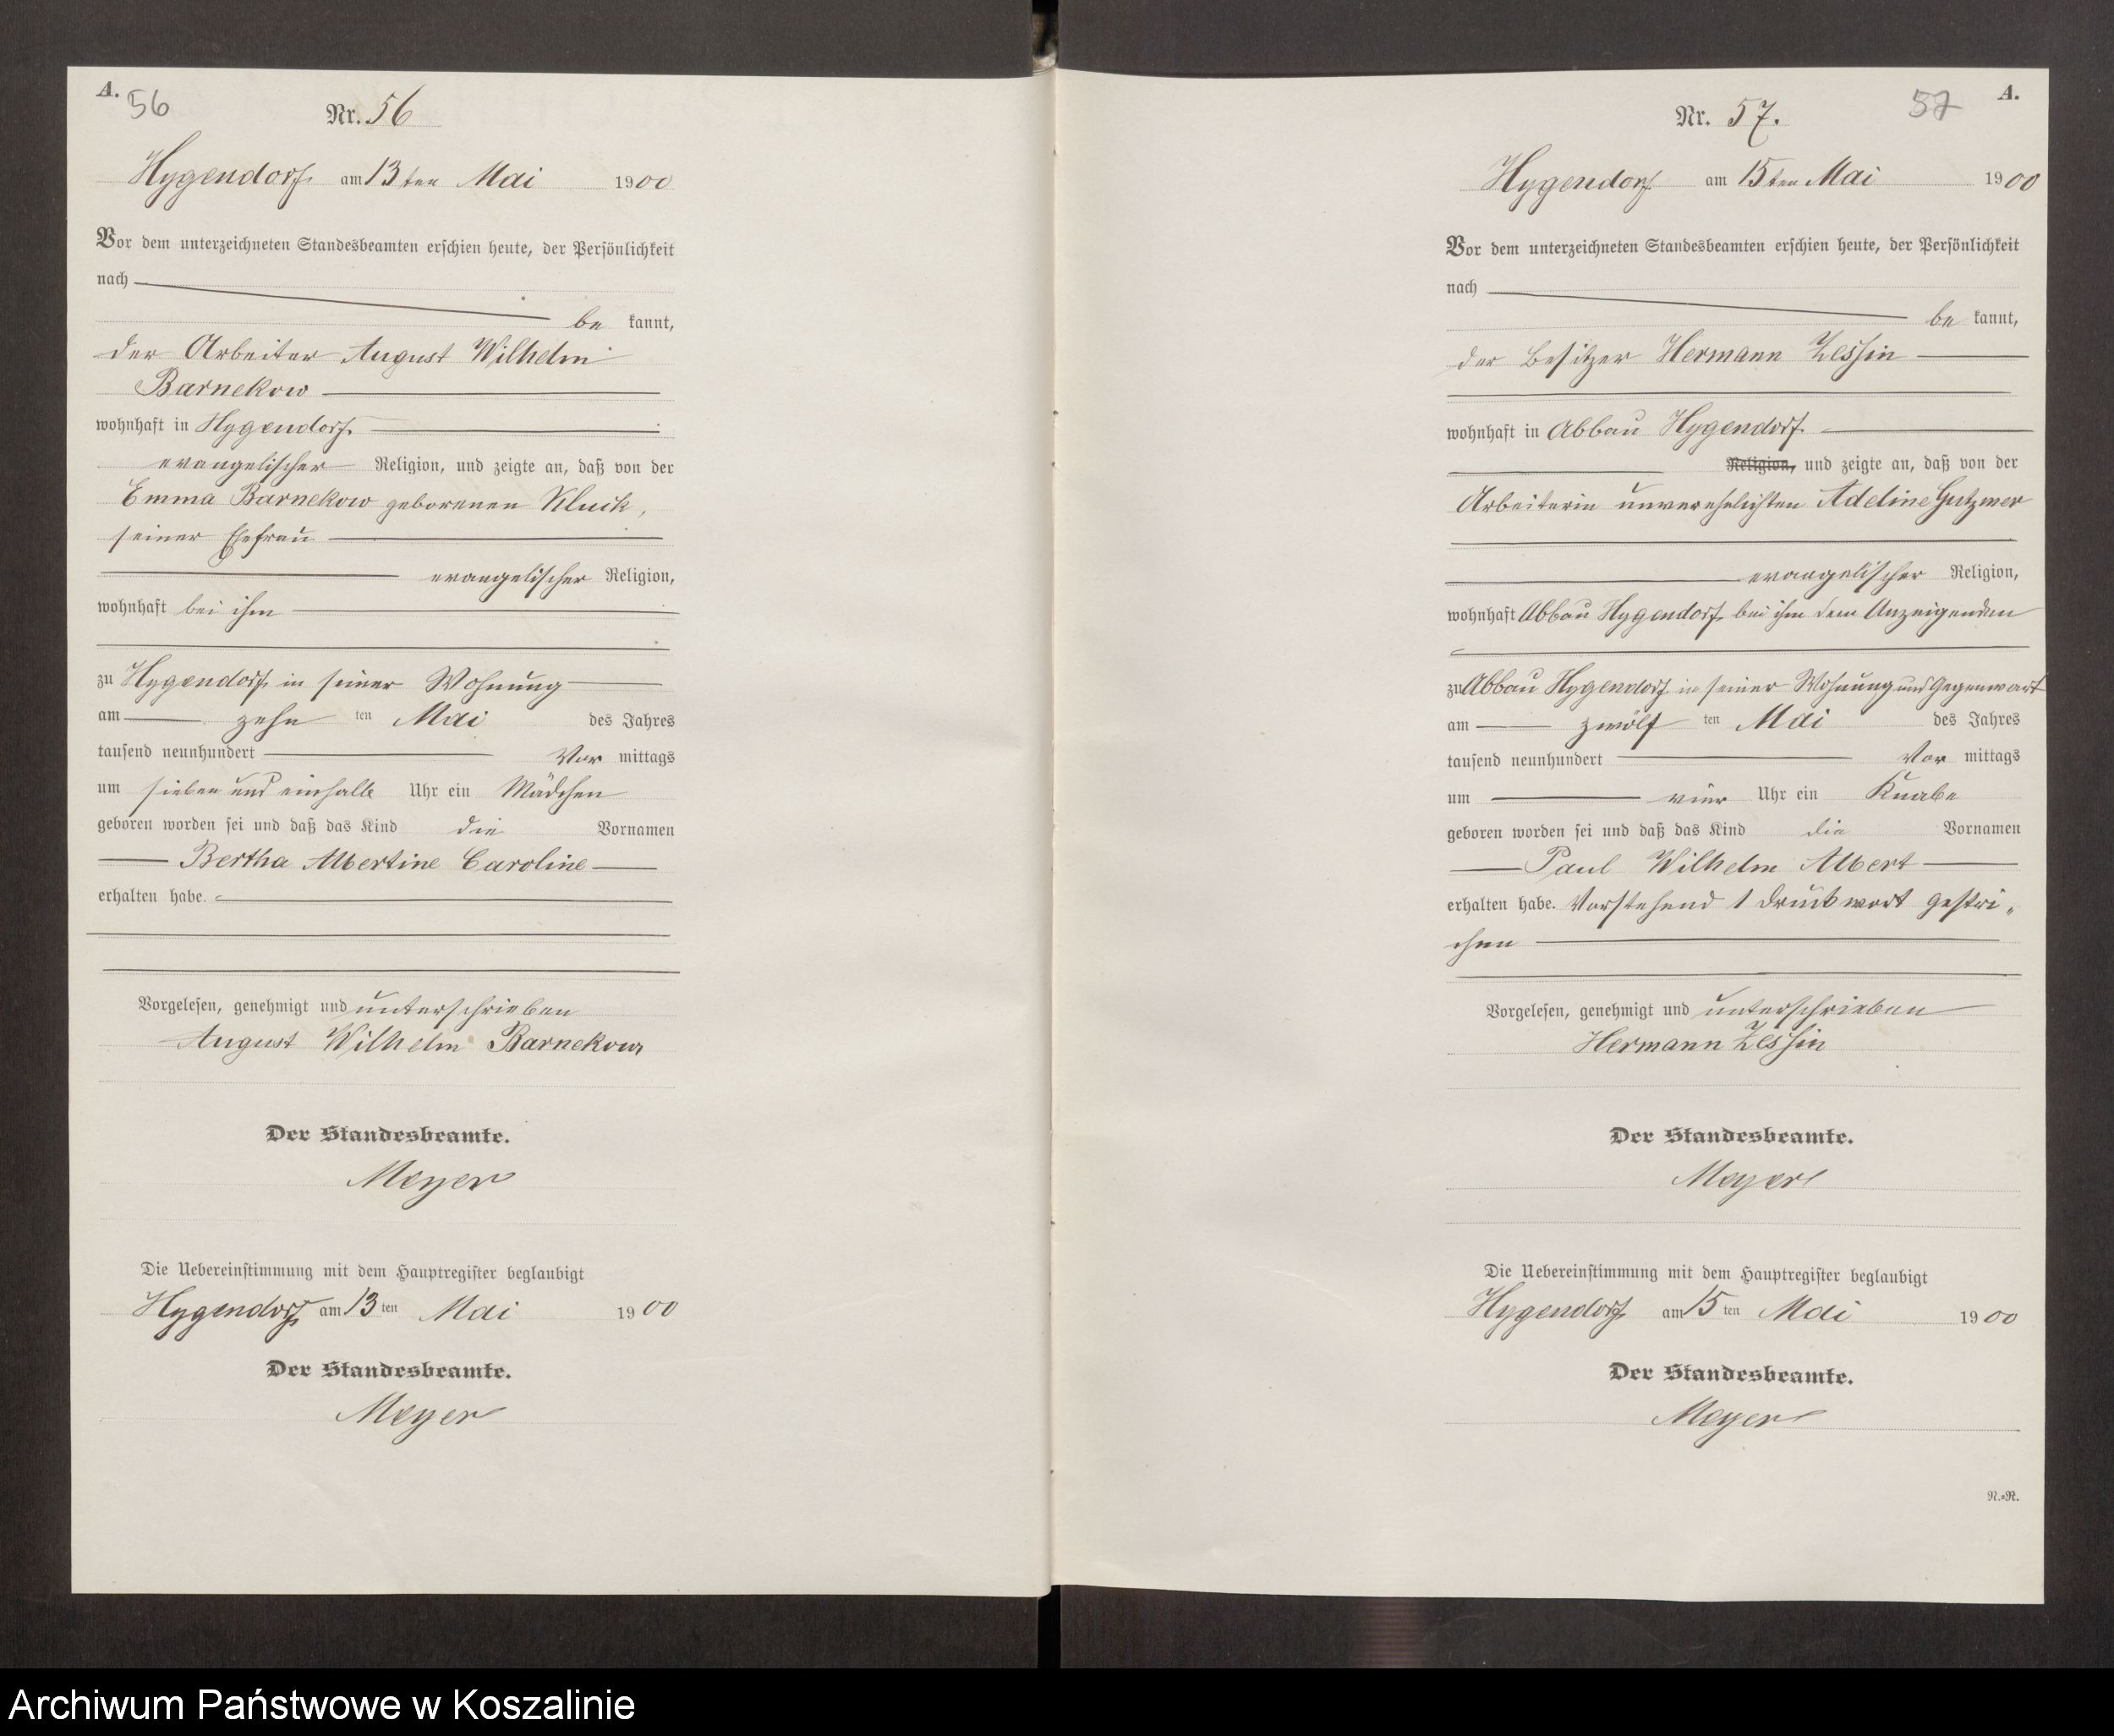 A.
56
Nr. 56
Hygendorf am 13ten Mai 1900
Vor dem unterzeichneten Standesbeamten erschien heute, der Persönlichkeit
nach
be kannt,
der Arbeiter August Wilhelm
Barnekow
wohnhaft in Hygendorf
evangelischer Religion, und zeigte an, daß von der
Emma Barnekow geborenen Kluck,
seiner Ehefrau
evangelischer Religion,
wohnhaft bei ihm
zu Hygendorf in seiner Wohnung
am zehn ten Mai des Jahres
tausend neunhundert Vor mittags
um sieben und einhalb Uhr ein Mädchen
geboren worden sei und daß das Kind die Vornamen
Bertha Albertine Caroline
erhalten habe.
Vorgelesen, genehmigt und unterschrieben
August Wilhelm Barnekow
Der Standesbeamte.
Meyer
Die Uebereinstimmung mit dem Hauptregister beglaubigt
Hygendorf am 13 ten Mai 1900
Der Standesbeamte.
Meyer
A.
57
Nr. 57.
Hygendorf am 15ten Mai 1900
Vor dem unterzeichneten Standesbeamten erschien heute, der Persönlichkeit
nach
be kannt,
der Besitzer Hermann Zessin
wohnhaft in Abbau Hygendorf
Religion, und zeigte an, daß von der
Arbeiterin unverehelichten Adeline Gutzmer
evangelischer Religion,
wohnhaft Abbau Hygendorf bei ihm dem Anzeigenden
zu Abbau Hygendorf in seiner Wohnung und Gegenwart
am zwölf ten Mai des Jahres
tausend neunhundert Vor mittags
um vier Uhr ein Knabe
geboren worden sei und daß das Kind die Vornamen
Paul Wilhelm Albert
erhalten habe. Vorstehend 1 Druckwort gestri-
chen
Vorgelesen, genehmigt und unterschrieben
Hermann Zessin
Der Standesbeamte.
Meyer
Die Uebereinstimmung mit dem Hauptregister beglaubigt
Hygendorf am 15 ten Mai 1900
Der Standesbeamte.
Meyer
R.=R.
Archiwum Państwowe w Koszalinie